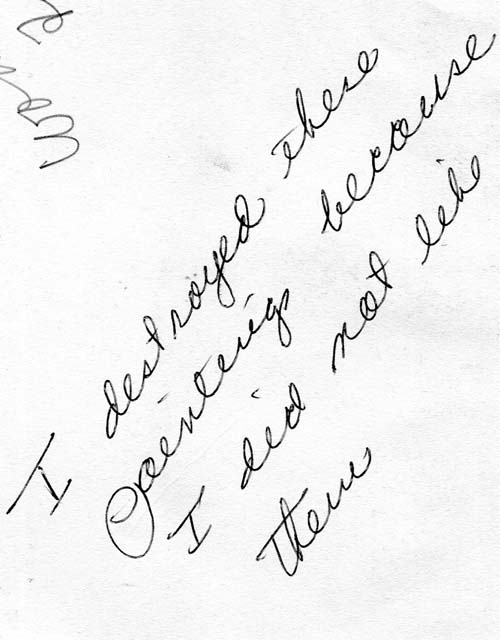 I destroyed these
paintings because
I did not like
them